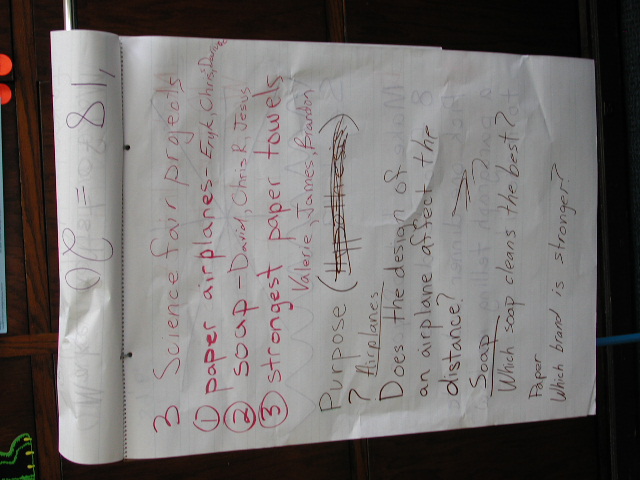 3 Science fair projects
① paper airplanes - Eryk, Chris,
② soap - David, Chris R, Jesus
③ strongest paper towels
Valerie, James, Brandon
Purpose (Hypothesis)
? Airplanes
Does the design of
an airplane affect the
distance?
Soap
Which soap cleans the best?
Paper
Which brand is stronger?